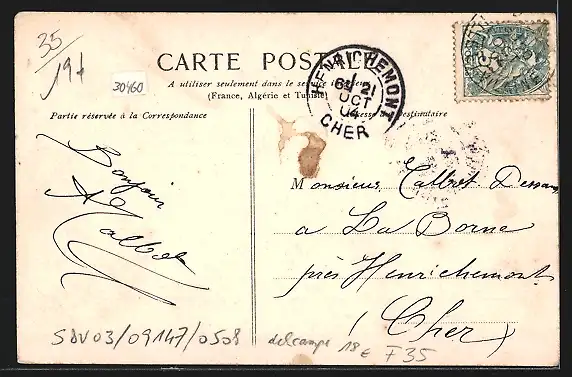 35
19+
30460
CARTE POSTALE
A utiliser seulement dans le service intérieur
(France, Algérie et Tunisie)
HENRICHEMONT
21
OCT
04
CHER
Partie réservée à la Correspondance
Adresse du Destinataire
Bonjour
A Talbot
Monsieur Talbot
a La Borne
près Henrichemont
(Cher)
SAV03/09147/0508
delcampe 18€ F35